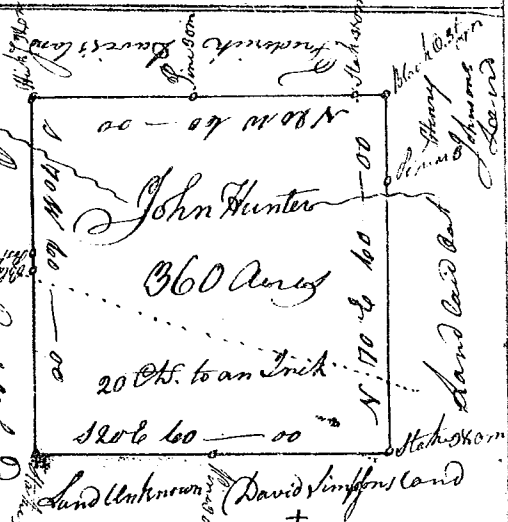 Frederick Davis's land
Black O. 3x
Henry Johnsons Land
N 20 W 60 — 00
John Hunter
360 Acres
20 Chs. to an Inch
S 70 W 60 — 00
N 70 E 60 — 00
S 20 E 60 — 00
Land laid out
Stake 3x om
Land Unknown
David Simpsons land